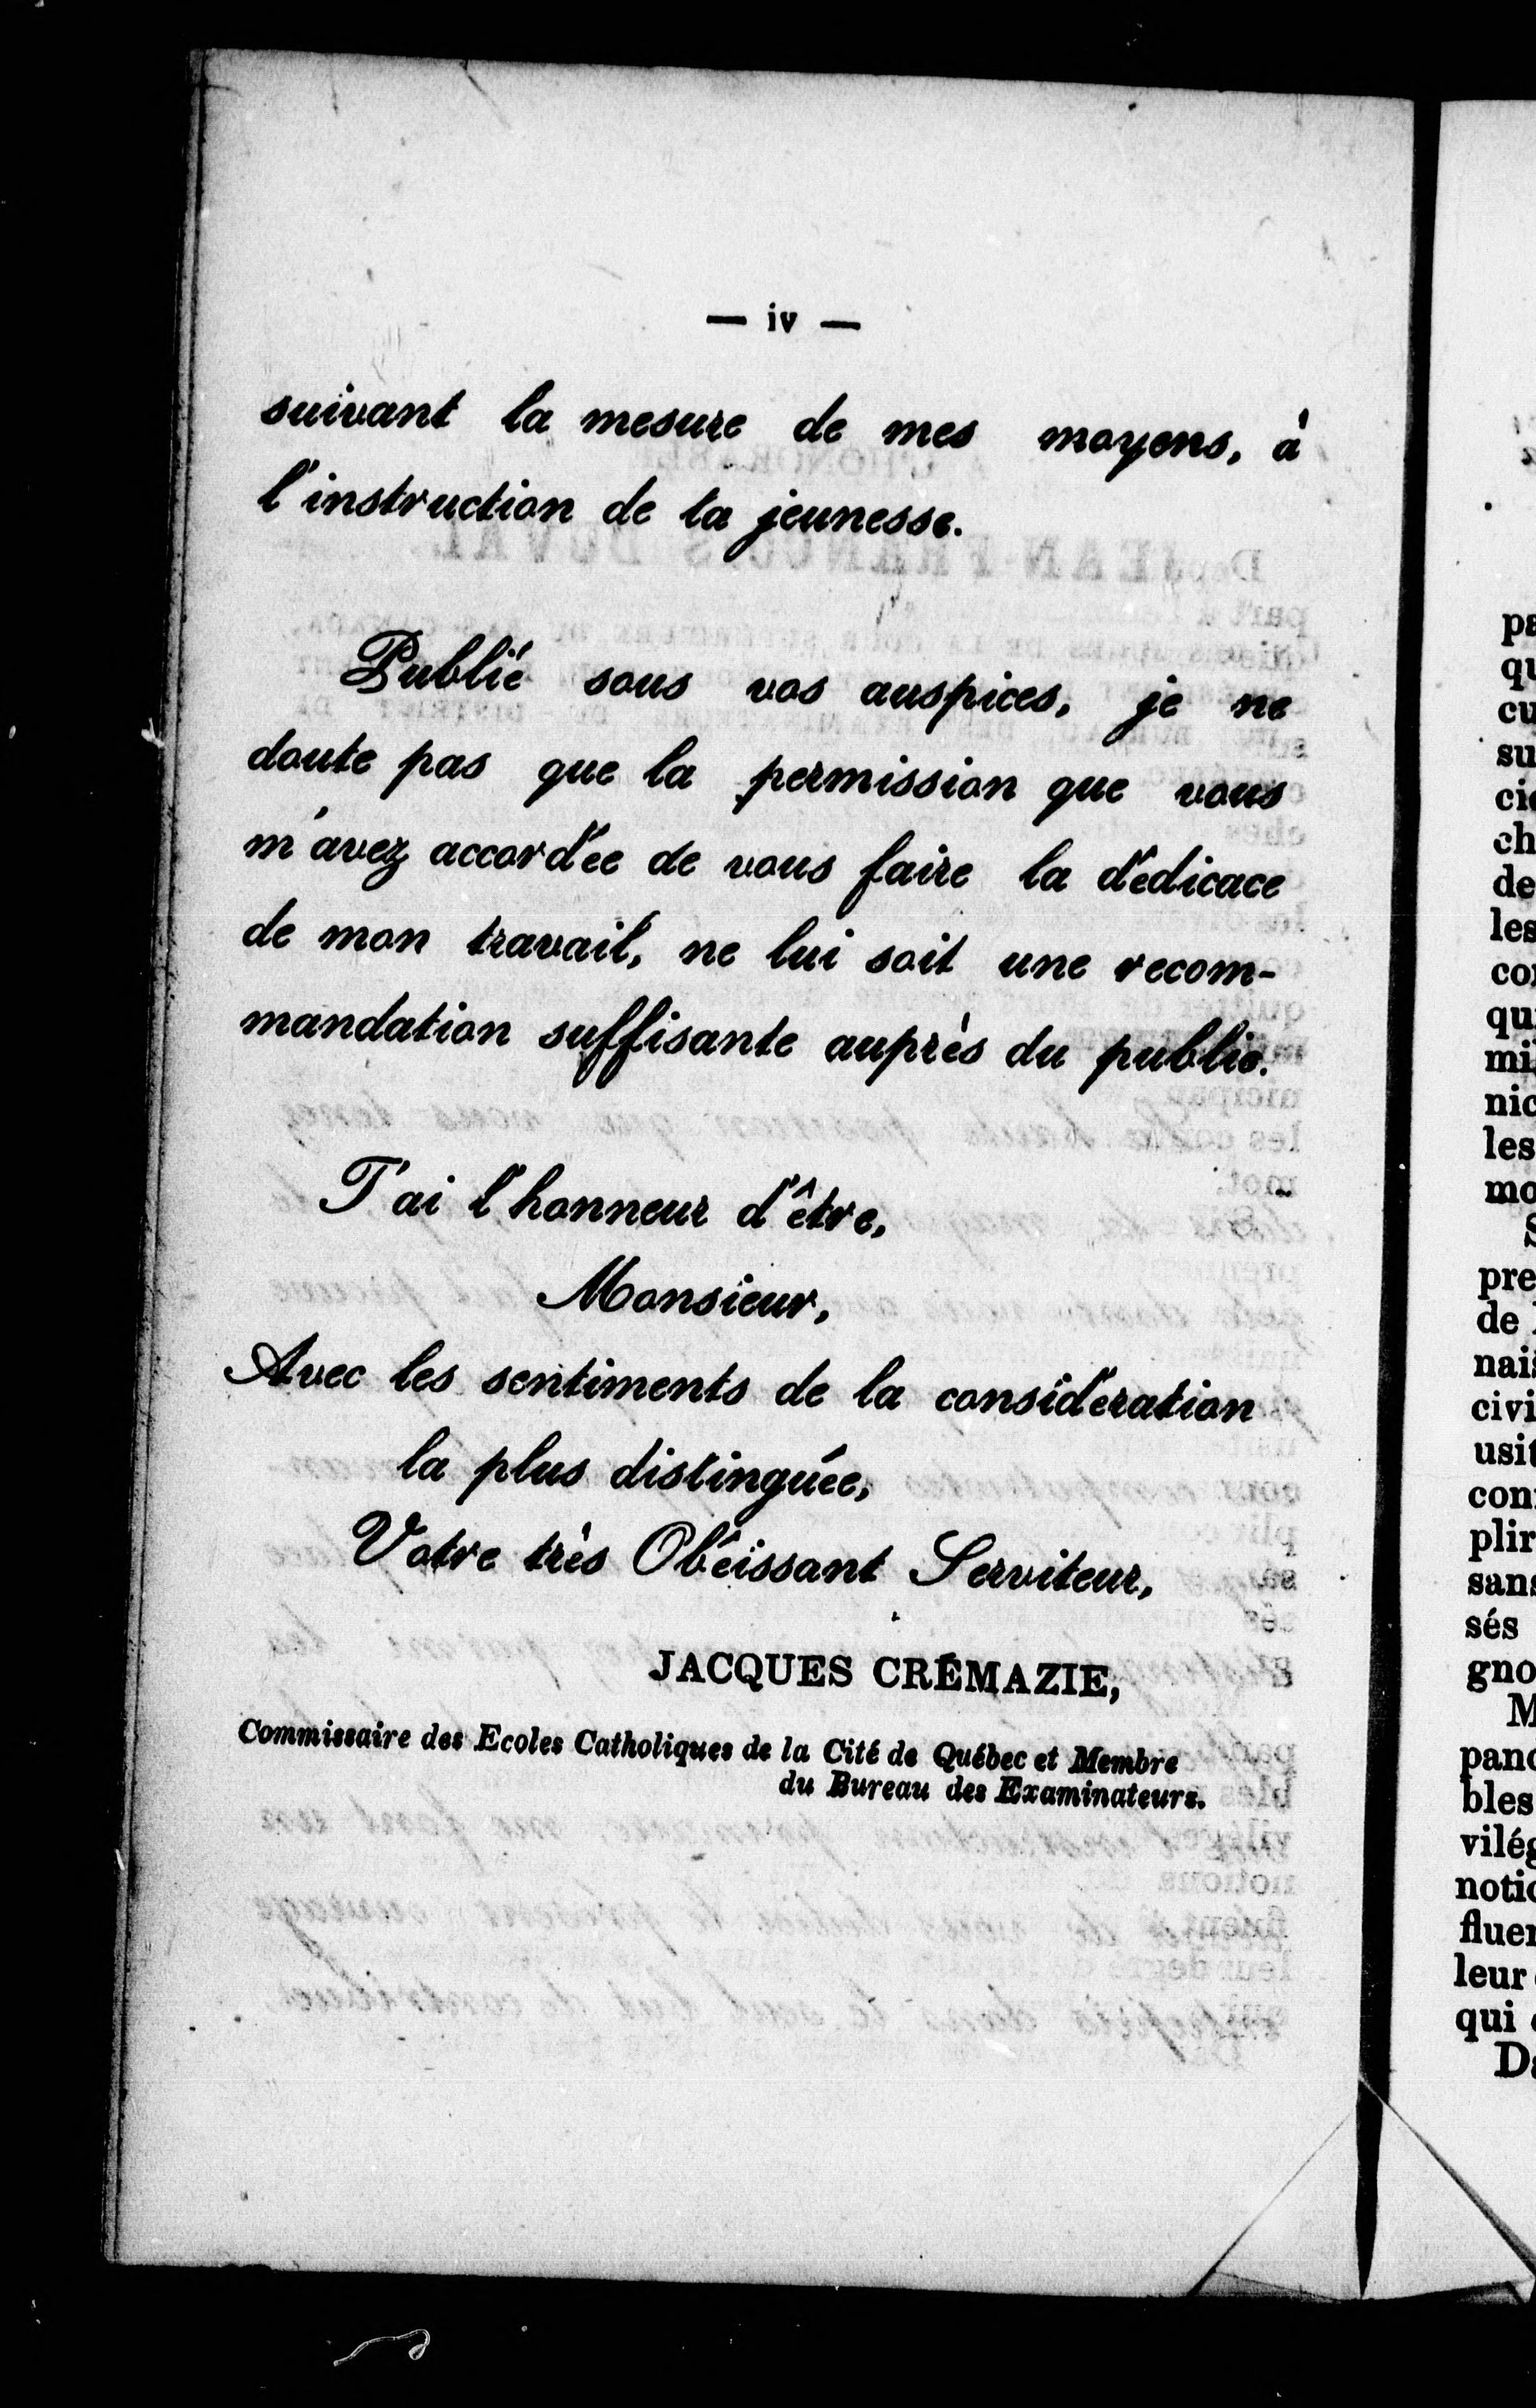 — iv —
suivant la mesure de mes moyens, à
l'instruction de la jeunesse.
Publié sous vos auspices, je ne
doute pas que la permission que vous
m'avez accordée de vous faire la dédicace
de mon travail, ne lui soit une recom-
mandation suffisante auprès du public.
J'ai l'honneur d'être,
Monsieur,
Avec les sentiments de la considération
la plus distinguée,
Votre très Obéissant Serviteur,
JACQUES CRÉMAZIE,
Commissaire des Ecoles Catholiques de la Cité de Québec et Membre
du Bureau des Examinateurs.
qu
cu
su
ch
de
les
qu
les
pre
de
civi
usit
plir
sans
sés
gno
M
bles
leur
qui